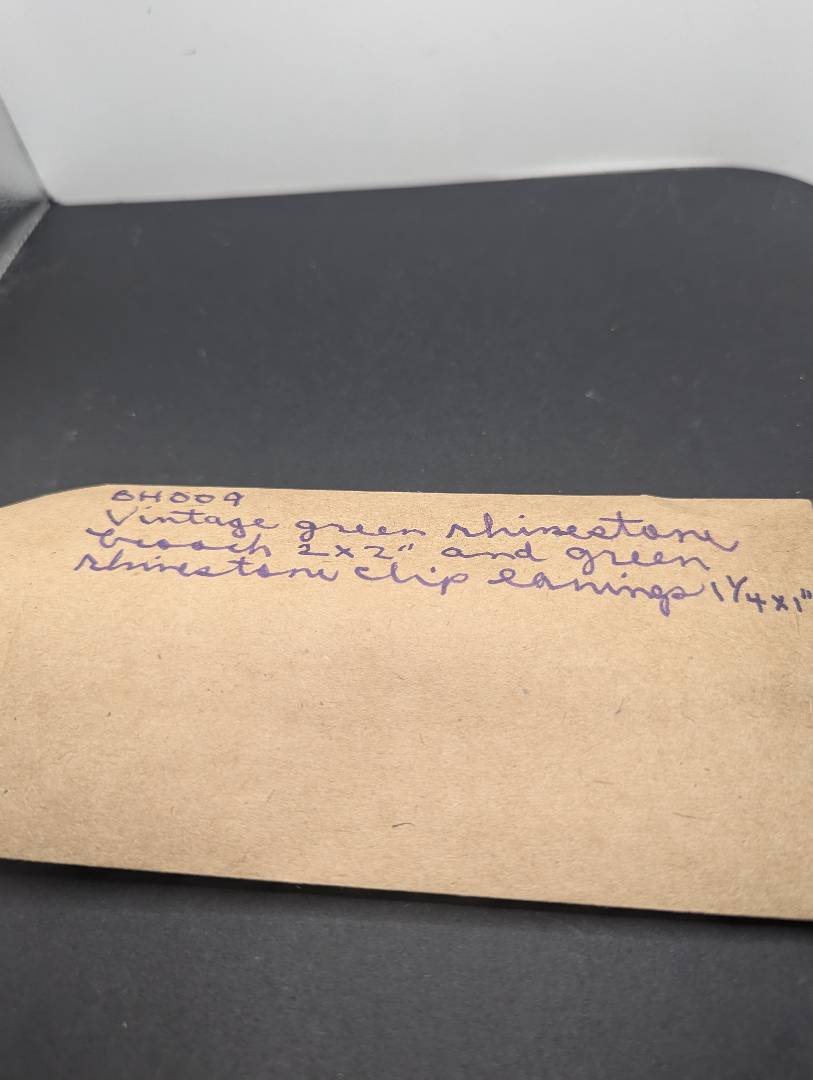 BH009
Vintage green rhinestone
brooch 2x2" and green
rhinestone clip earrings 1 1/4 x 1"